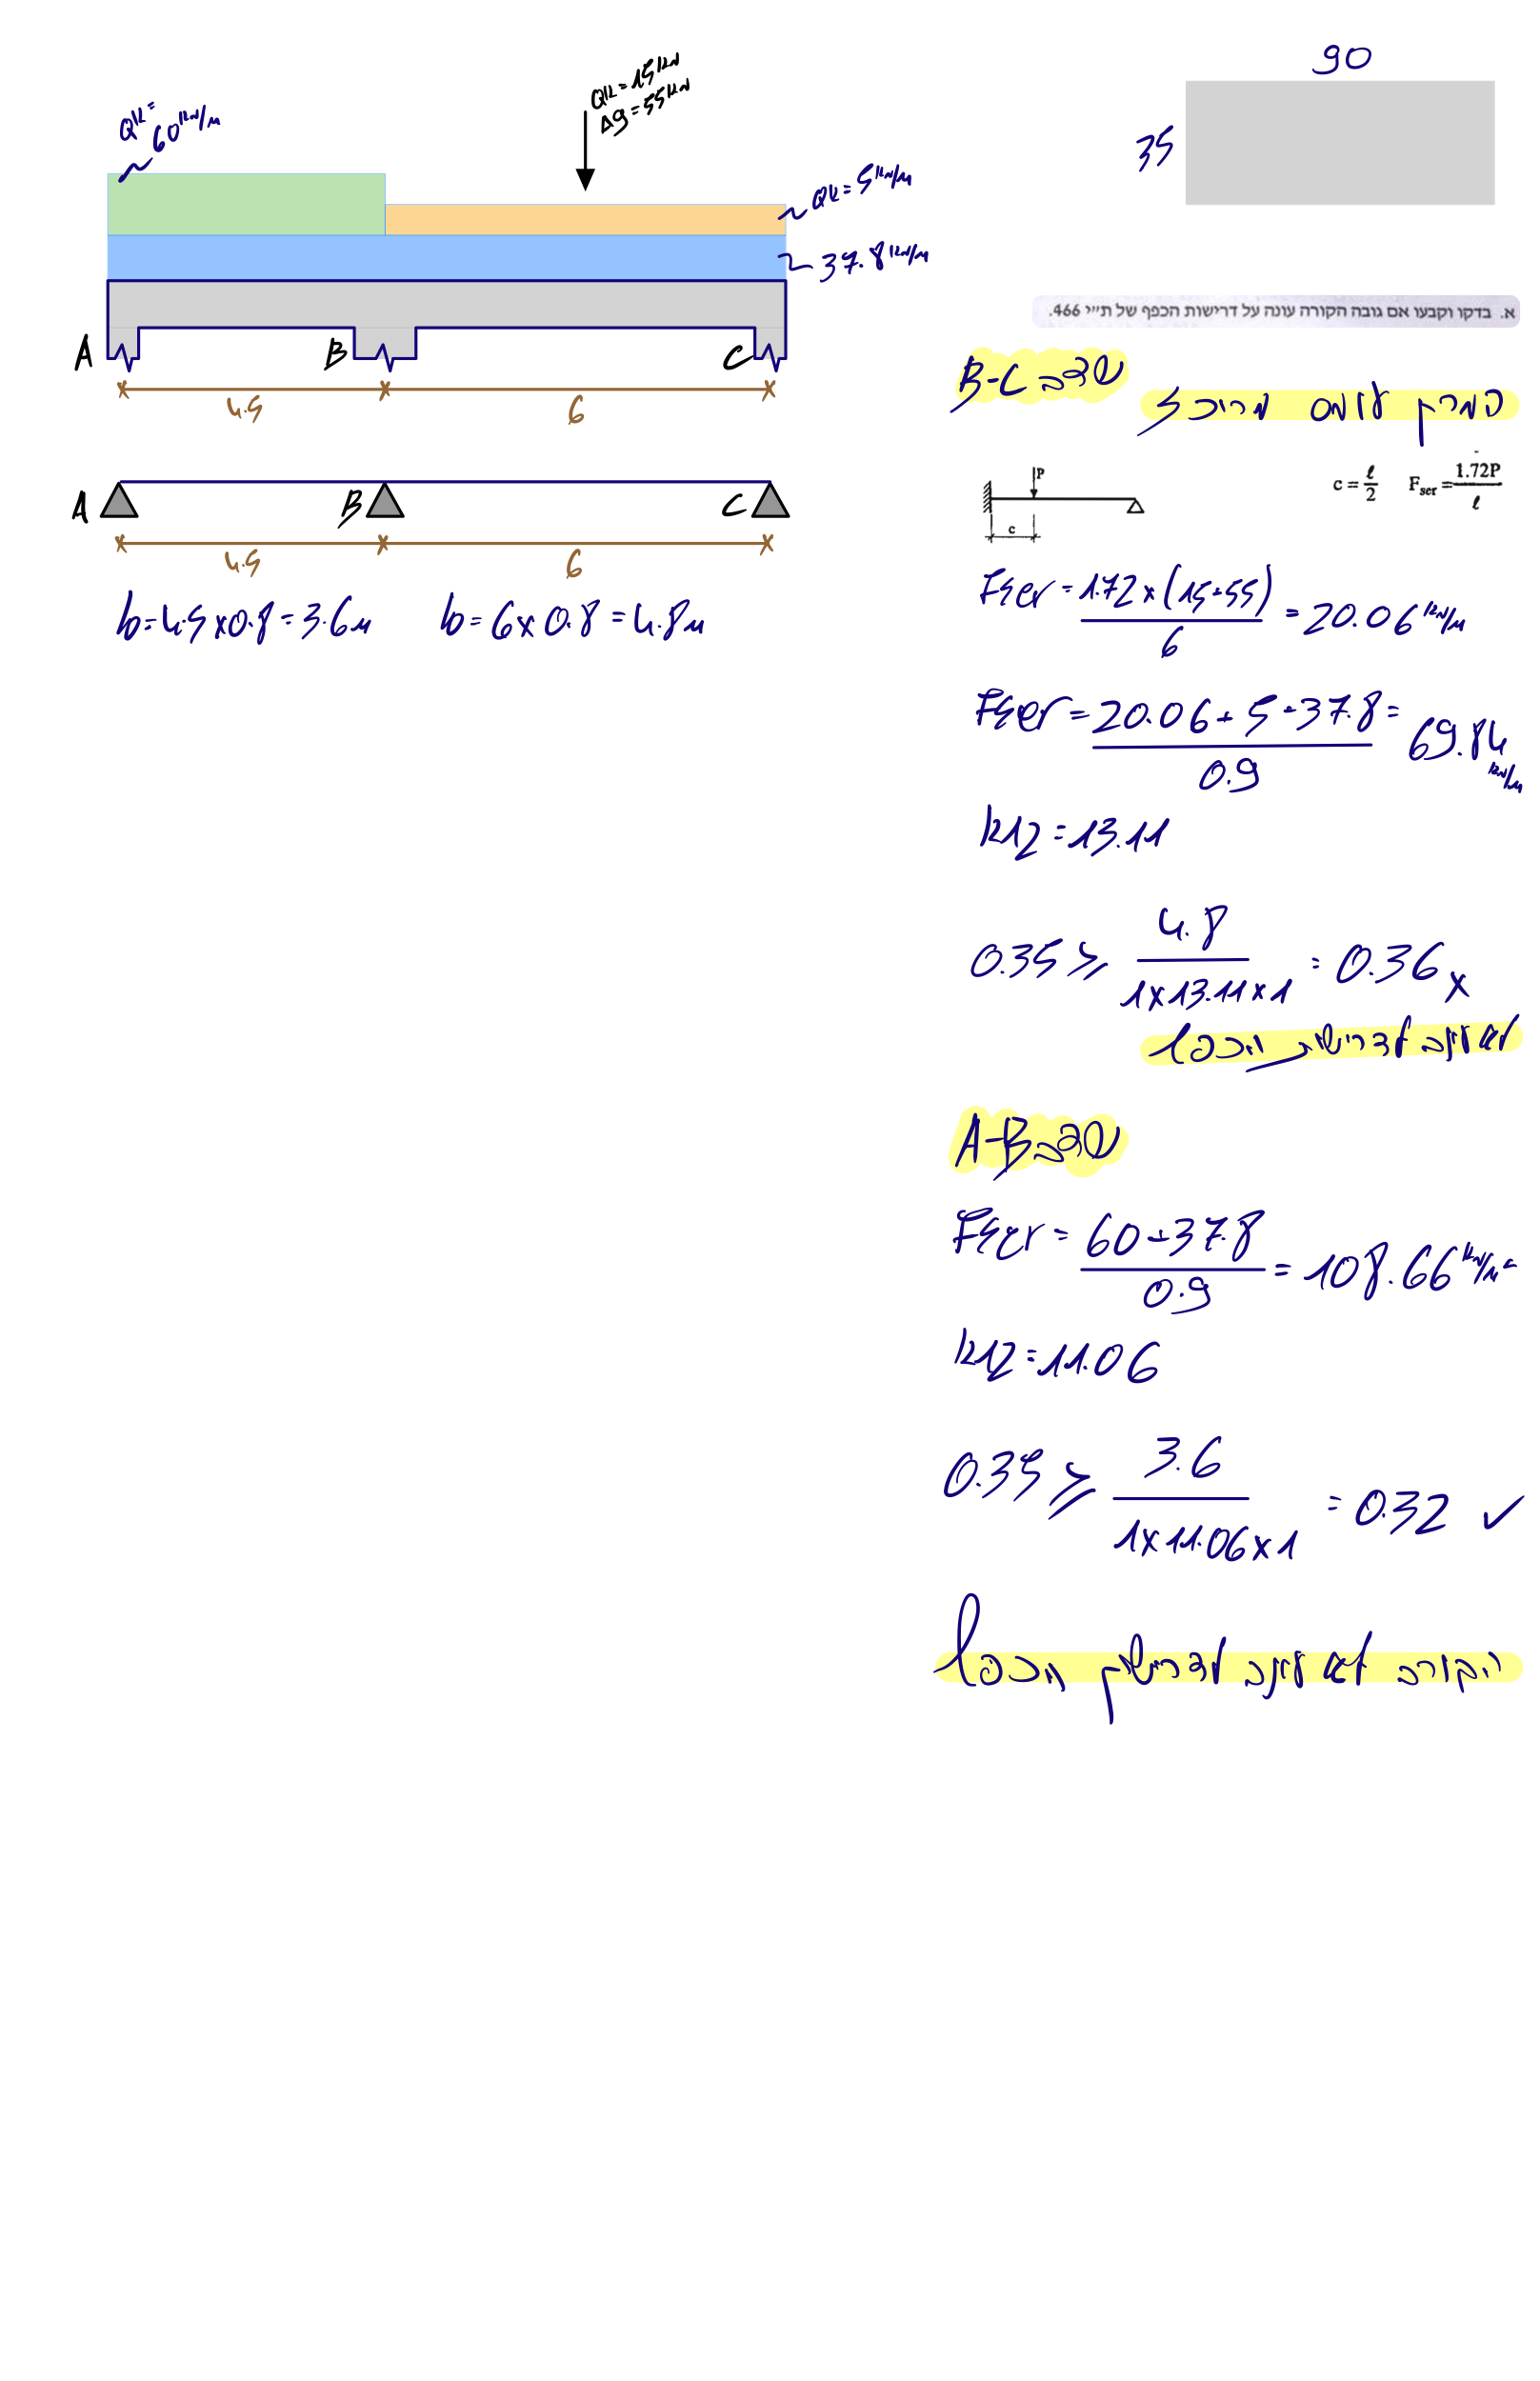 Qk=
60kN/m
Qk=15kN
Δg=55kN
Qk=5kN/m
37.8kN/m
A
B
C
4.5
6
A
B
C
4.5
6
l0=4.5x0.8=3.6m
l0=6x0.8=4.8m
90
35
א. בדקו וקבעו אם גובה הקורה עונה על דרישות הכפף של ת״י 466.
שדה B-C
המרת עומס מרוכז
P
c
c = ℓ/2
Fser = 1.72P/ℓ
Fser = 1.72x(15+55)/6 = 20.06kN/m
Fser = 20.06+5+37.8/0.9 = 69.84 kN/m
k12=13.11
0.35 ≥ 4.8/1x13.11x1 = 0.36 x
לא עונה לדרישות הכפף
שדה A-B
Fser = 60+37.8/0.9 = 108.66kN/m²
k12=11.06
0.35 ≥ 3.6/1x11.06x1 = 0.32 ✓
הקורה לא עונה לדרישת הכפף